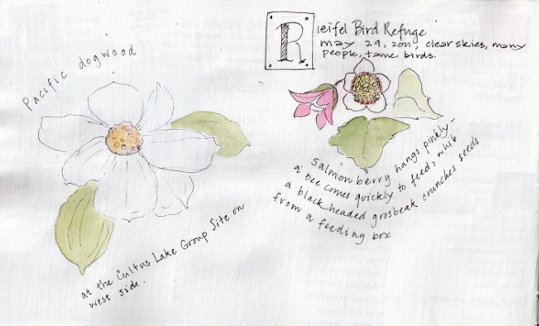 Pacific dogwood
at the Cultus Lake Group Site on
west side.
Reifel Bird Refuge
may 29, 2011, clear skies, many
people, tame birds.
Salmonberry hangs pinkly–
a bee comes quickly to feed, while
a black headed grosbeak crunches seeds
from a feeding box